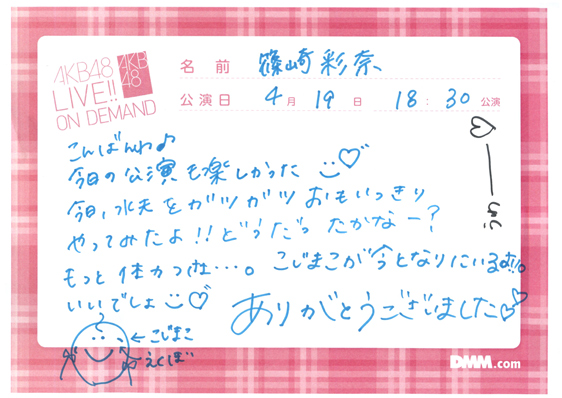 AKB48
LIVE!!
ON DEMAND
AKB
48
名前 篠崎彩奈
公演日 4月19日 18:30公演
こんばんわ♪
今日の公演も楽しかった♡
今日、水夫をガツガツおもいっきり
やってみたよ!!どうだったかなー?
もっと体力つけ…。こじまこが今となりにいるよ!!
いいでしょ♡
ありがとうございました♡♡
←こじまこ
←えくぼ
DMM.com